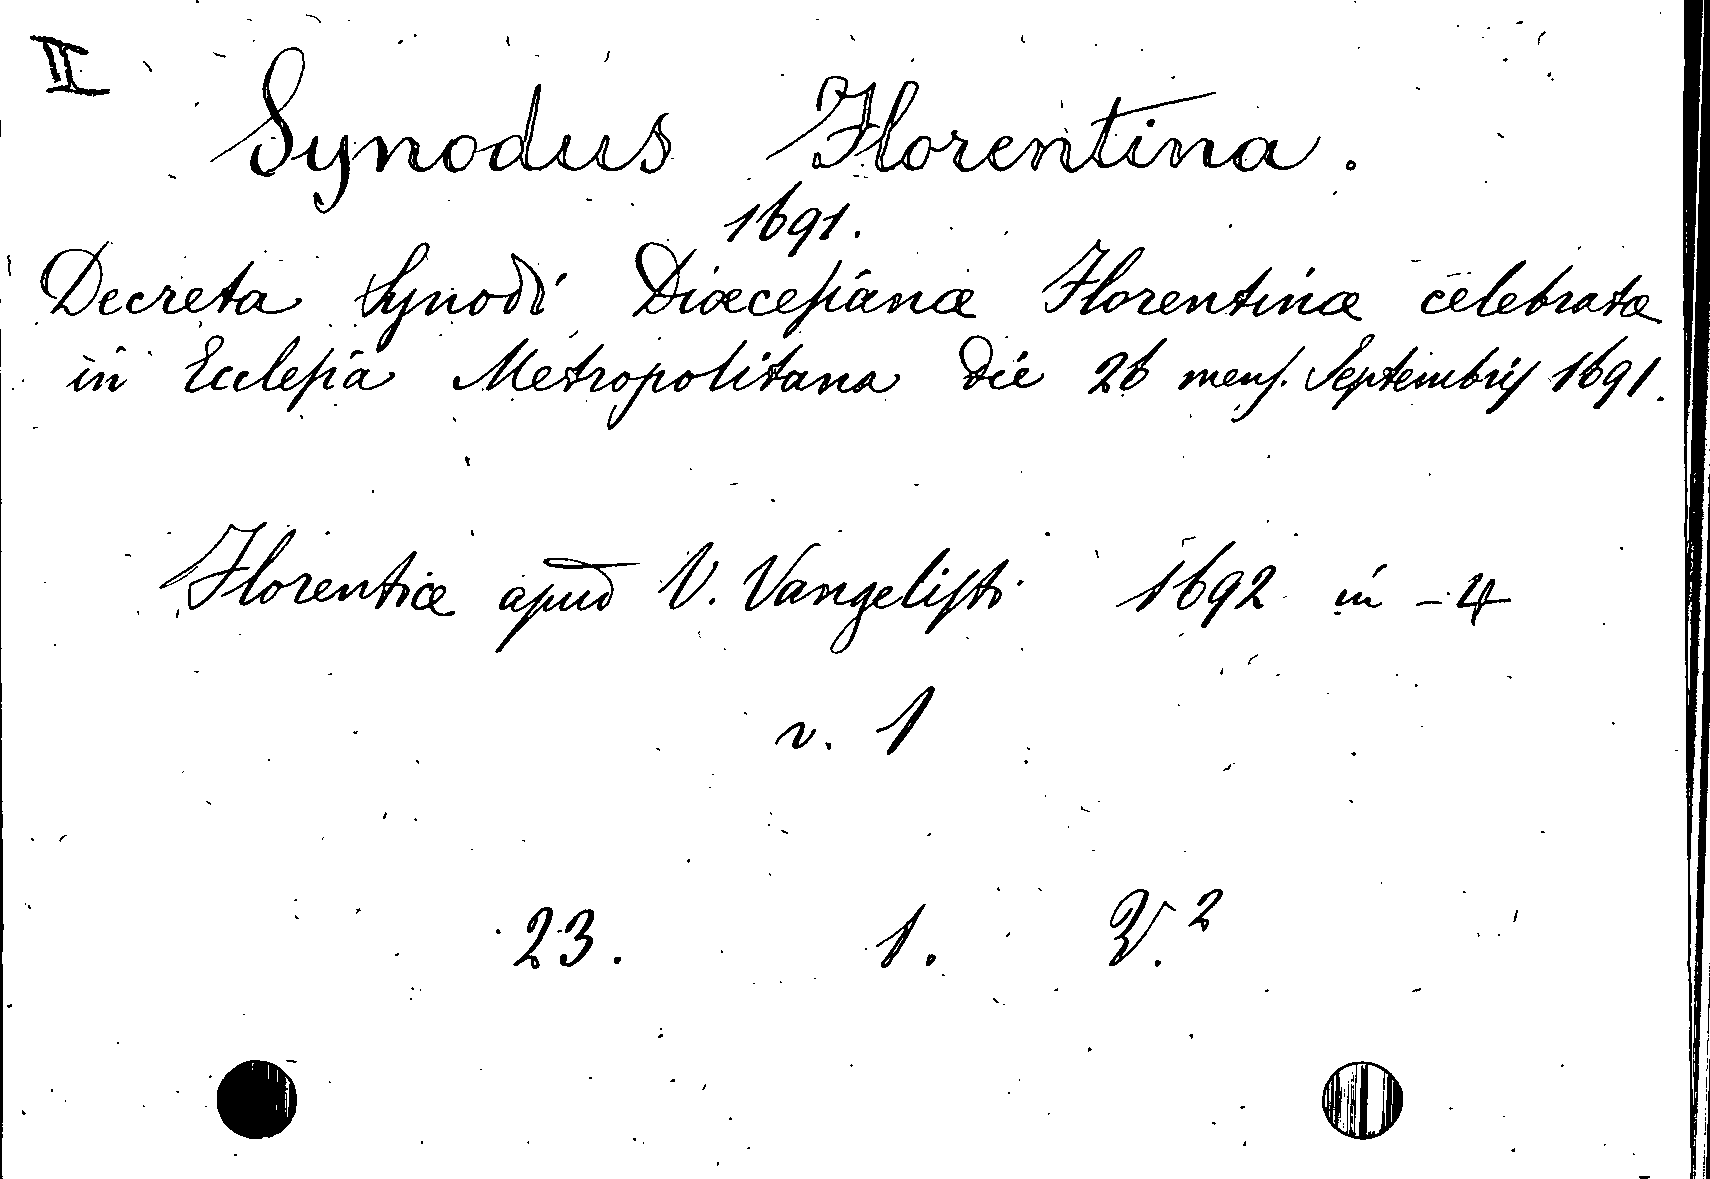 II
Synodus Florentina.
1691.
Decreta Synodi Diœcesanæ Florentinæ celebratæ
in Ecclesia Metropolitana die 26 mens. Septembris 1691.
Florentiæ apud V. Vangelisti 1692 in-4
v. 1
23. 1. V.²